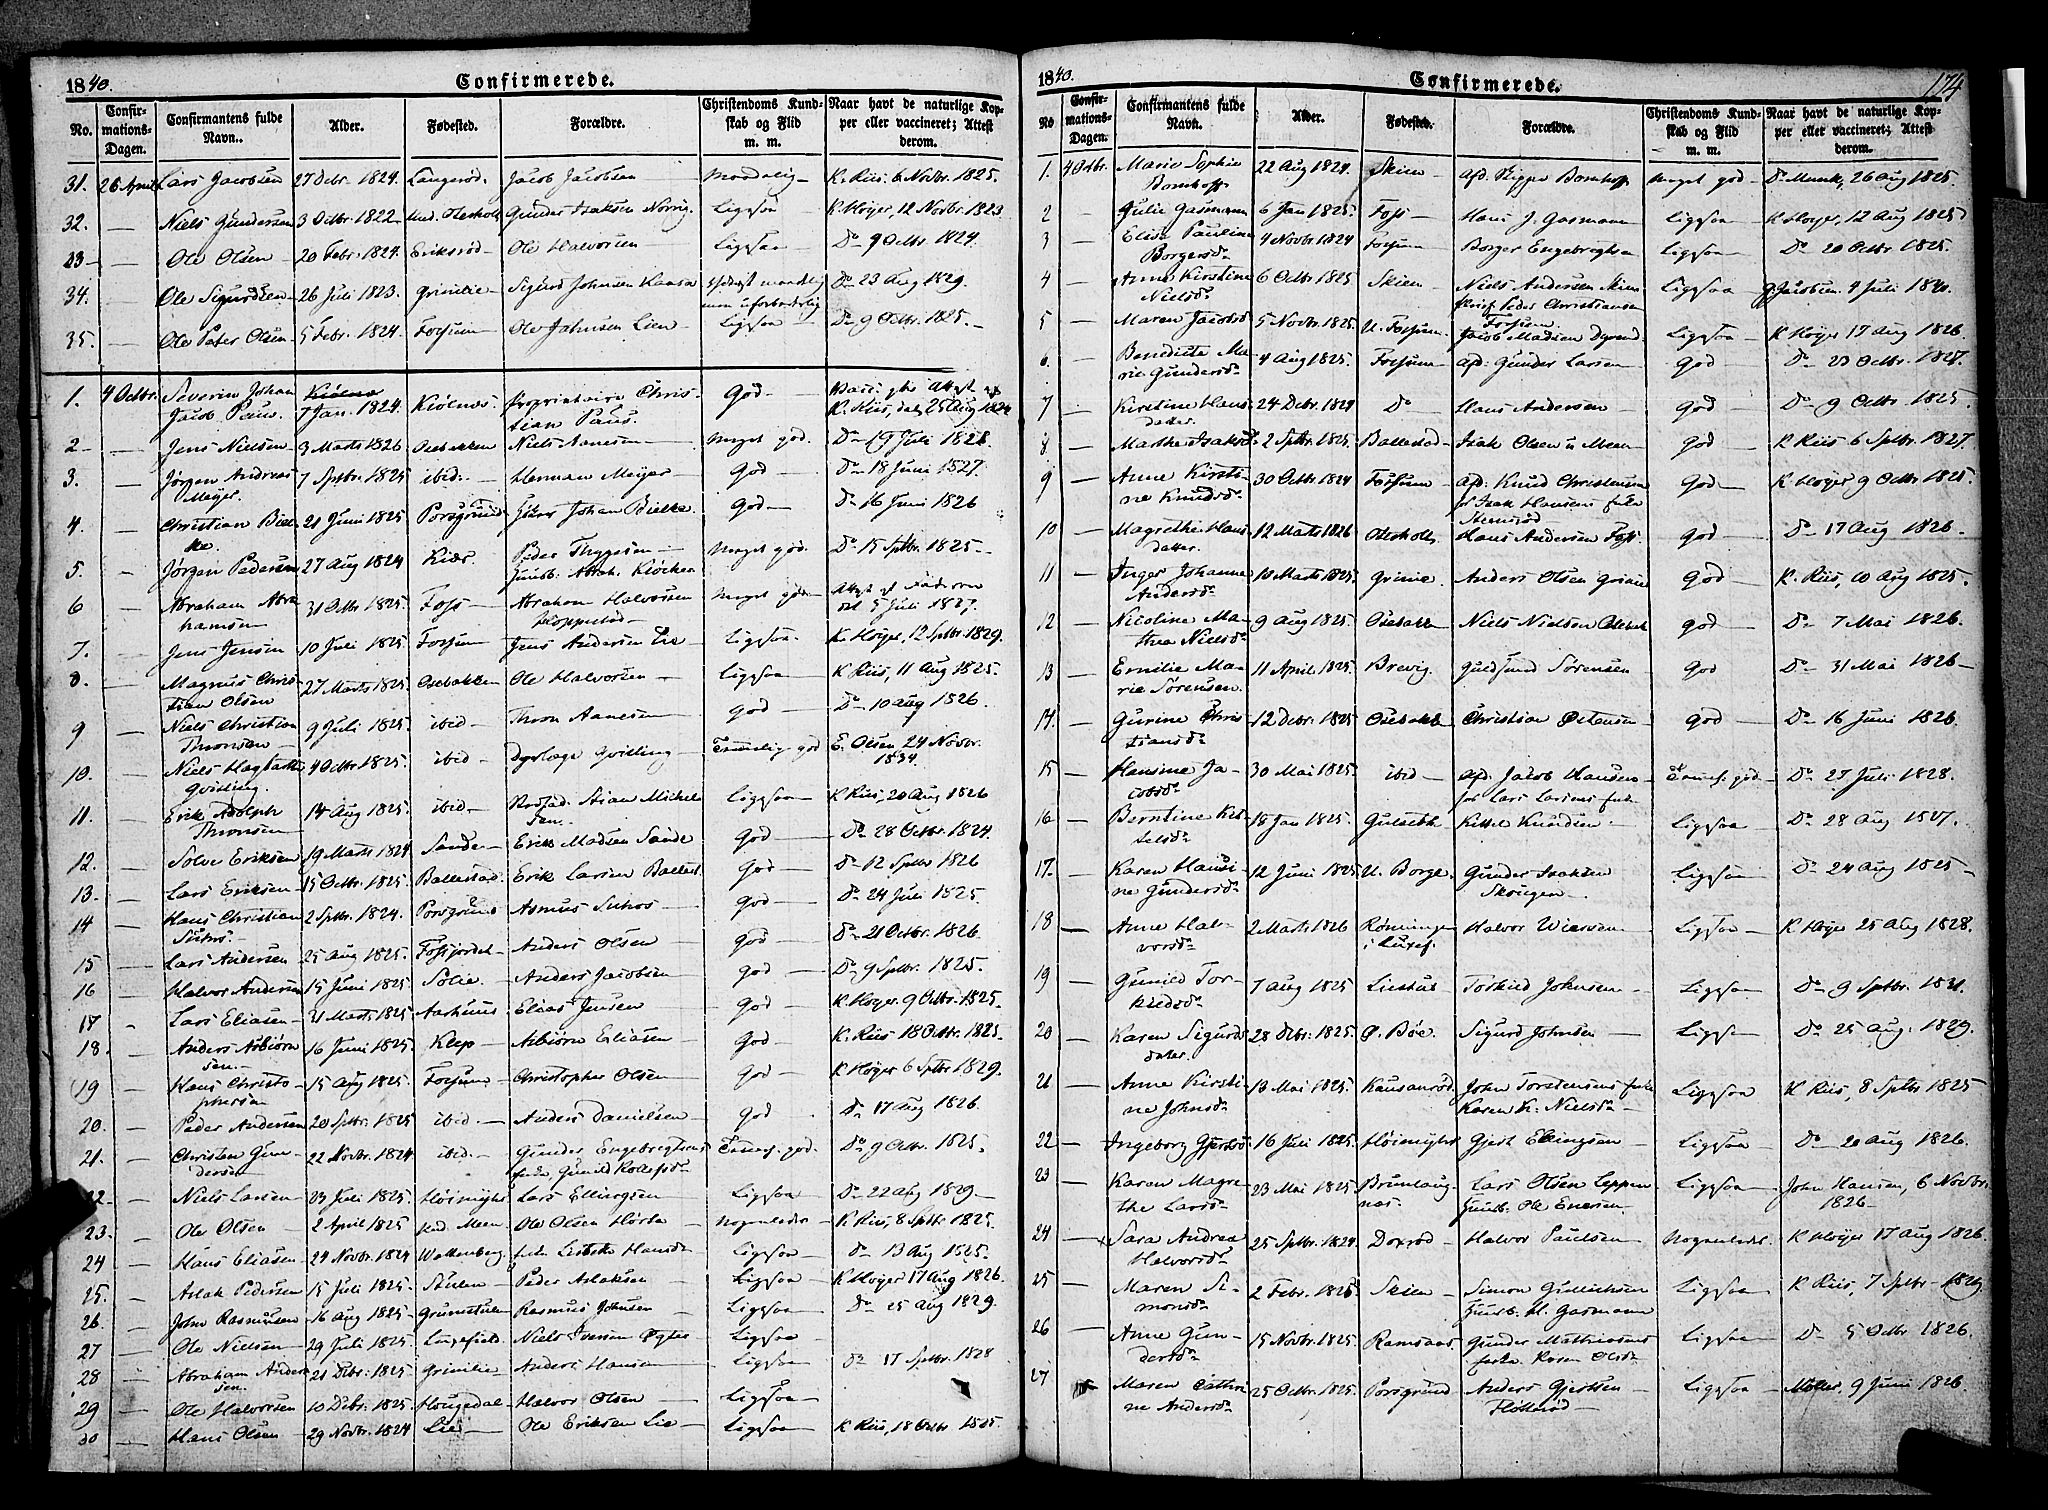 1840.
Confirmerede.
No.
Confirmations-Dagen.
Confirmantens fulde Navn.
Alder.
Fødested.
Forældre.
Christendoms Kundskab og Flid m. m.
Naar havt de naturlige Kopper eller vaccineret; Attest derom.
31. 26 April Lars Jacobsen 27 Debr. 1824. Langerød. Jacob Jacobsen Maadelig K. Riis. 6 Novbr. 1825.
32. Niels Gundersen 3 Octbr 1822 Gunder Isaksen Ligesaa K Høyer, 12 Novbr. 1823
33 Ole Olsen 20 Febr. 1824. Eriksrød Ole Halvorsen Ligesaa Do 9 Octbr 1824.
34. Ole Sigurdsen 26 Juli 1823. Grinilie Sigurd Johnsen maadelig men uforbederlig Do 23 Aug 1829.
35. Ole Peter Olsen 5 Febr. 1824. Forsum Ole Johnsen Lien Ligesaa Do 9 Octbr. 1825.
1. 4 Octbr. Severin Johan Jacob Paus. 7 Jan. 1824. Kiøenæs Proprietaire Christian Paus. God K. Riis, dat. 25 Aug 1824
2 Jens Nielsen 3 Marts 1826 Osebakken Niels Aanesen Meget god. Do 19 Juli 1828.
3. Jørgen Andreas Meyer. 7 Sptbr. 1825 ibid. Herman Meyer God Do 18 Juni 1827.
4. Christian Bielke. 21 Juni 1825 Porsgrund Johan Bielke God Do 16 Juni 1826
5. Jørgen Pedersen 27 Aug 1824 Kiær Peder Thygesen Meget god. Do 15 Sptbr. 1825
6 Abraham Abrahamsen 31 Octbr 1825. Foss Abraham Halvorsen Meget god Attest af Faderen dat 5 Juli 1827.
7. Jens Jensen 10 Juli 1825. Forsum Jens Andersen Lie Ligesaa. K. Høyer, 12 Sptbr. 1829.
8. Magnus Christian Olsen 27 Marts 1825 Osebakken Ole Halvorsen Ligesaa K Riis, 11 Aug 1825.
9 Niels Christian Thronsen 9 Juli 1825. ibid Thron Aanesen God Do 10 Aug 1826.
10. Niels Hagbarth Qvisling. 4 Octbr 1825. ibid Dyrlæge Qvisling Temmelig god E. Olsen 24 Novbr. 1834.
11. Erik Adolph Thronsen 14 Aug 1825. ibid Stian Michelsen. Ligesaa K Riis, 20 Aug 1826
12. Solve Eriksen 19 Marts 1824 Sande Erik Madsen Sande God Do 28 Octbr. 1824.
13. Lars Eriksen 15 Octbr. 1825 Ballestad Erik Larsen Ballest. God Do 12 Sptbr 1826
14 Hans Christian 2 Sptbr. 1824. Porsgrund Asmus God Do 24 Juli 1825.
15 Lars Andersen 25 Aug 1825 Anders Olsen God Do 21 Octbr. 1826.
16 Halvor Andersen 15 Juni 1825 Solie Anders Jacobsen God Do 9 Sptbr. 1825.
17 Lars Eliasen 21 Marts 1825 Aarhuus Elias Jensen God K Høyer. 9 Octbr. 1825.
18. Anders Asbiørnsen. 16 Juni 1825. Klep Asbiørn Eliasen God K. Riis 18 Octbr. 1825.
19 Hans Christophersen 15 Aug 1825. Forsum Christopher Olsen God K Høyer 6 Sptbr 1829.
20. Peder Andersen 20 Sptbr. 1825 ibid. Anders Danielsen God Do 17 Aug 1826.
21. Christen Gundersen 22 Novbr. 1824 ibid. Gunder Engebregtsen Temel. god. Do 9 Octbr. 1825.
22 Niels Larsen 23 Juli 1825. Høimyhr Lars Ellingsen Ligesaa Do 22 Aug 1829
23. Ole Olsen 2 April 1825 Ned Meen Ole Olsen Nogenledes K Riis, 8 Sptbr. 1825.
24 Hans Eliasen 24 Novbr. 1824 Wattenberg Lisbeth Hansdr Ligesaa Do 13 Aug 1825.
25. Aslak Pedersen 15 Juli 1825. Stulen Peder Aslaksen Ligesaa K Høyer 17 Aug 1826.
26. John Rasmusen 16 Aug 1825 Grumstulen Rasmus Johnsen Ligesaa Do 25 Aug 1829.
27 Ole Nielsen 29 Juli 1825 Niels Iversen Ligesaa
28 Abraham Andersen. 21 Debr. 1825. Grinilie Anders Hansen Ligesaa Do 17 Sptbr. 1828
29 Ole Halvorsen 10 Debr. 1825 Hougedal Halvor Olsen Ligesaa
30 Hans Olsen 29 Novbr. 1824 Lie Ole Eriksen Lie Ligesaa K Riis, 18 Octbr 1825.
1840.
Confirmerede.
174
No
Confirmations-Dagen.
Confirmantens fulde Navn.
Alder.
Fødested.
Forældre.
Christendoms Kundskab og Flid m. m.
Naar havt de naturlige Kopper eller vaccineret; Attest derom.
1. 4 Octbr. Marie Sophie Bomhoff 22 Aug 1824. Skien afd. Bomhoff Meget god Dr Munk, 26 Aug 1825.
2 Julie Gasmann 6 Jan 1825. Foss Hans J. Gasmann Ligesaa K Høyer, 12 Aug 1825
3 Elise Pauline Borgersdr 4 Novbr. 1824 Forsum Borger Engebregtsen Ligesaa Do 20 Octbr. 1825.
4 Anne Kirstine Nielsdr 6 Octbr 1825 Skien Niels Andersen Skien Peder Christiansen Forsum Ligesaa Jacobsen. 4 Juli 1840.
5 Maren Jacobsdr 5 Novbr. 1825. N. Forsum Jacob Madsen Ligesaa K Høyer 17 Aug 1826.
6. Benedicte Marie Gundersdr 4 Aug 1825. Forsum afd. Gunder Larsen God Do 23 Octbr. 1827.
7 Kirstine Hansdatter. 24 Debr. 1824 Do Hans Andersen God Do 9 Octbr. 1825.
8. Marthe Isaksdr 2 Sptbr. 1825. Ballestad Isak Olsen n Meen God K Riis 6 Sptbr. 1827.
9 Anne Kirstine Knudsdr 30 Octbr 1824 Forsum afd. Knud Christensen Isak Hansens God K Høyer 9 Octbr. 1825.
10 Magrethe Hansdatter. 12 Marts 1826 Hans Andersen Foss God Do 17 Aug 1826.
11 Inger Johanne Andersdr 10 Marts 1825. Grinie. Anders Olsen Grinie God K. Riis, 10 Aug 1825.
12 Nicoline Mathea Nielsdr 9 Aug 1825 Osebakk. Niels Nielsen Osebak God Do 7 Mai 1826.
13 Emilie Marie Sørensen. 11 April 1825. Brevig. Guldsmed Sørensen God Do 31 Mai 1826
14. Gurine Christiansdr 12 Debr. 1825 Osebakk Christian Petersen God Do 16 Juni 1826.
15 Hansine Jacobsdr 30 Mai 1825. ibid afd. Jacob Lars Larsens Temel. god Do 27 Juli 1828.
16 Berntine Kittelsdr 18 Jan 1825. Gulseth Kittel Knudsen Ligesaa Do 28 Aug 1827.
17. Karen Hansine Gundersdr 12 Juni 1825 N. Borge. Gunder Isaksen Skougen Ligesaa Do 24 Aug 1825
18 Anne Halvorsdr 2 Marts 1826 Rønningen i Halvor Ligesaa K Høyer 25 Aug 1828.
19 Gunild Torkildsdr 7 Aug 1825 Torkild Johnsen Ligesaa Do 9 Sptbr. 1831.
20 Karen Sigurdsdater. 28 Debr. 1825. Ø. Bøe. Sigurd Johnsen Ligesaa Do 25 Aug. 1829.
21 Anne Kirstine Johnsdr 13 Mai 1825. John Torstensens enke Karen K. Nielsdr Ligesaa K Riis, 8 Sptbr 1825
22 Ingeborg Gjertsdr 16 Juli 1825. Høimyhr Gjert Ellingsen Ligesaa Do 20 Aug 1826.
23 Karen Magrethe Larsdr 23 Mai 1825 Brunlaugnæs. Lars Olsen Ole Enersen Ligesaa John Hansen, 6 Novbr. 1826
24 Sara Andrea Halvorsdr 25 Sptbr. 1824. Doxrød Halvor Paulsen Nogenledes K Høyer 17 Aug 1826.
25 Maren Simonsdr 2 Febr. 1825 Skien Simon Gullichsen H. Gasmann Ligesaa K Riis, 7 Sptbr 1829.
26 Anne Gundersdr 15 Novbr. 1825 Ramsaas Gunder Mathiasens enke Karen Olsdr Ligesaa Do 5 Octbr 1826.
27 Maren Cathrine Andersdr 25 Octbr. 1825. Porsgrund Anders Gjertsen Fløtterød Ligesaa Møller, 9 Juni 1826.